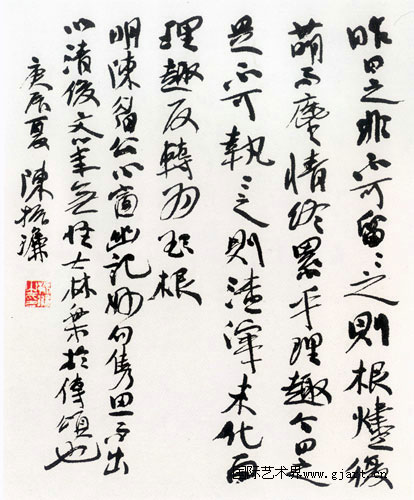 昨日之非不可留〻之則根燼復
萌而塵情終累乎理趣今日之
是不可執〻之則渣滓未化而
理趣反轉為欲根
明陳眉公小窗幽記妙句雋思而出
以清俊文筆無怪士林樂於傳頌也
庚辰夏 陳振濂
国际艺术界 www.gjart.cn